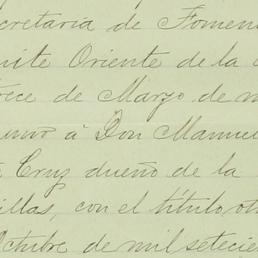 cretaria de Fomen
mite Oriente de la
rece de Marzo de m
à Don Manue
Cruz dueño de la
illas, con el título, ot
Octubre de mil setecie